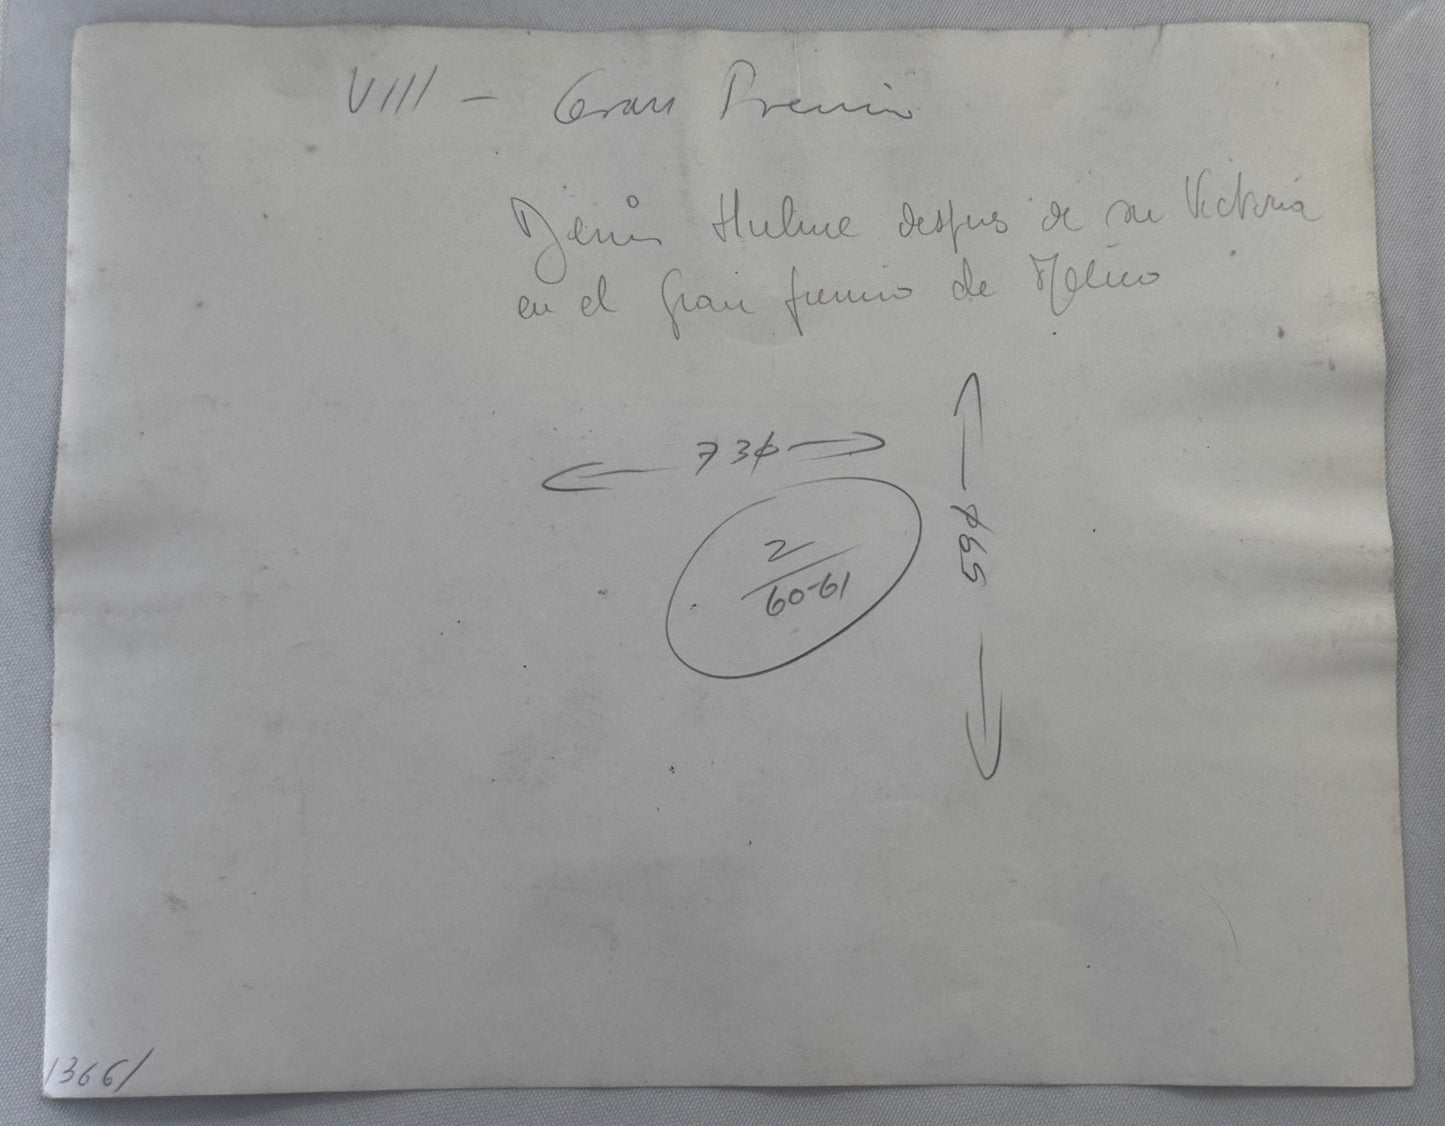 VIII - Gran Premio
Denis Hulme despues de su Victoria
en el Gran premio de Mexico
73φ
59φ
2
60-61
1366/